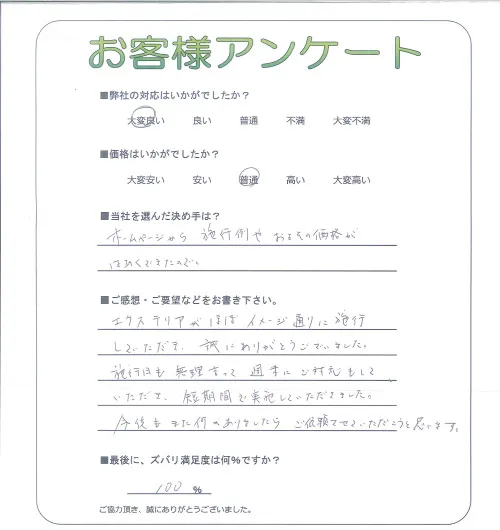 お客様アンケート
■弊社の対応はいかがでしたか？
大変良い 良い 普通 不満 大変不満
■価格はいかがでしたか？
大変安い 安い 普通 高い 大変高い
■当社を選んだ決め手は？
ホームページから 施行例や おおよその価格が
はあくできたので。
■ご感想・ご要望などをお書き下さい。
エクステリアがほぼ イメージ通りに 施行
していただき、誠にありがとうございました。
施行日も 無理言って 週末に ご対応もして
いただき、短期間で実施していただきました。
今後も また何かありましたら ご依頼させていただこうと思います。
■最後に、ズバリ満足度は何％ですか？
100 ％
ご協力頂き、誠にありがとうございました。